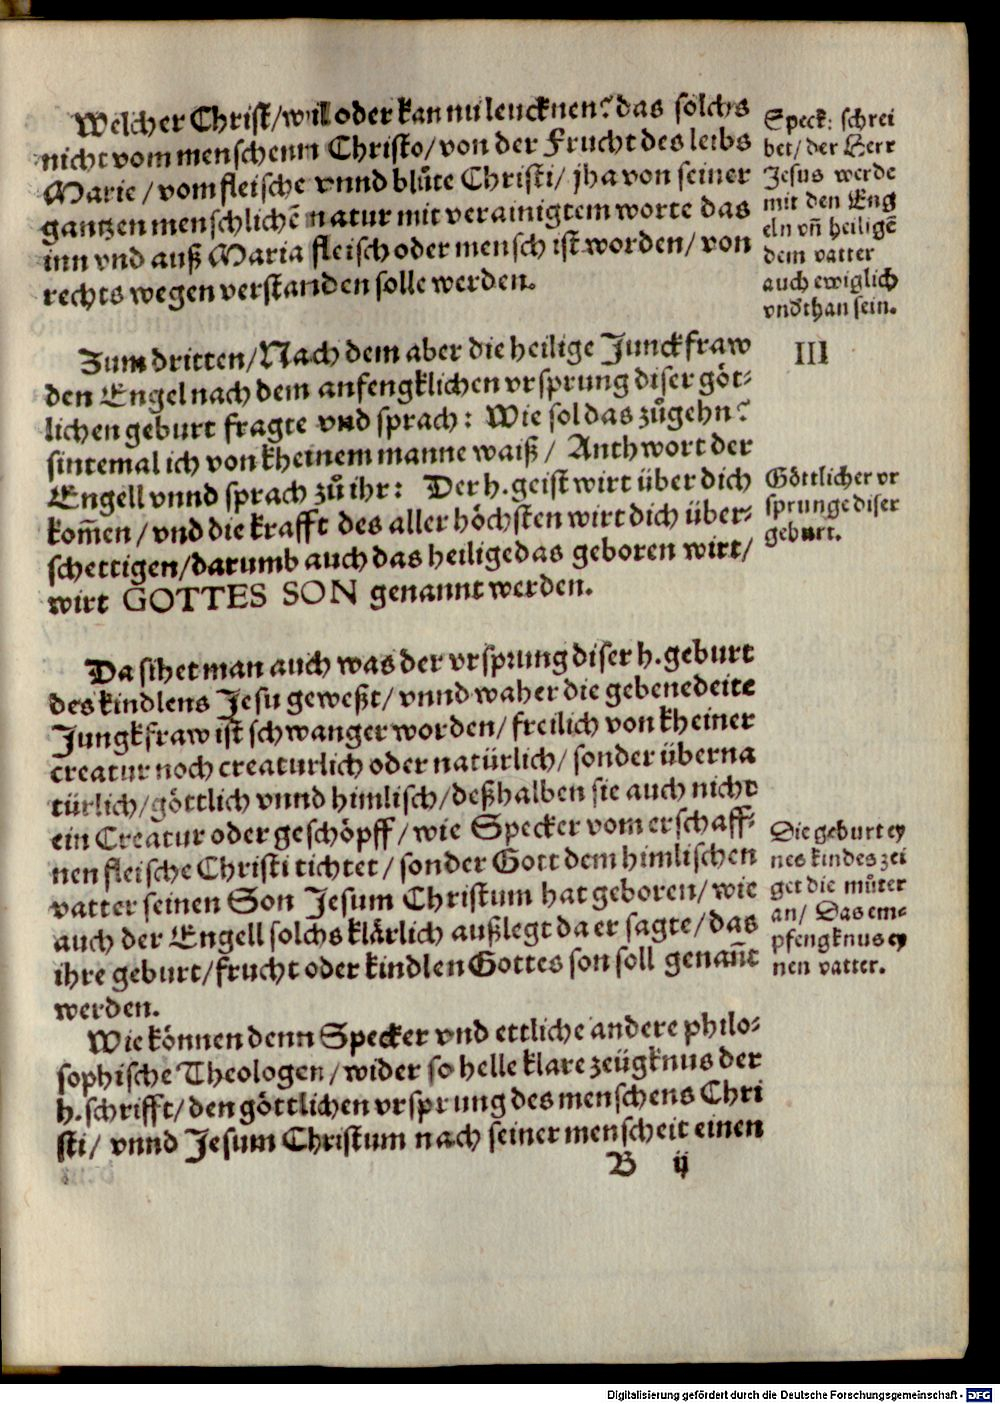 Welcher Christ/will oder kan nu leucknen? das solchs
nicht vom menschenn Christo/von der Frucht des leibs
Marie/vom fleische vnnd blůte Christi/jha von seiner
gantzen menschlichē natur mit verainigtem worte das
inn vnd auß Maria fleisch oder mensch ist worden/von
rechts wegen verstanden solle werden.
Speck: schrei
bet/der Herr
Jesus werde
mit den Eng
eln vñ heiligē
dem vatter
auch ewiglich
vndthan sein.
III
Zum dritten/Nach dem aber die heilige Junckfraw
den Engel nach dem anfengklichen vrsprung diser göt-
lichen geburt fragte vnd sprach: Wie sol das zůgehn?
sintemal ich von kheinem manne waiß/ Anthwort der
Engell vnnd sprach zů ihr: Der h. geist wirt über dich
kom̄en/vnd die krafft des aller höchsten wirt dich über-
schettigen/darumb auch das heilige das geboren wirt/
wirt GOTTES SON genannt werden.
Göttlicher vr
sprunge diser
geburt.
Da sihet man auch was der vrsprung diser h. geburt
des kindlens Jesu geweßt/vnnd waher die gebenedeite
Jungkfraw ist schwanger worden/freilich von kheiner
creatur noch creaturlich oder natürlich/sonder überna
türlich/göttlich vnnd himlisch/deßhalben sie auch nicht
ein Creatur oder geschöpff/wie Specker vom erschaff-
nen fleische Christi tichtet/sonder Gott dem himlischen
vatter seinen Son Jesum Christum hat geboren/wie
auch der Engell solchs klärlich außlegt da er sagte/das
ihre geburt/frucht oder kindlen Gottes son soll genañt
werden.
Die geburt ey
nes kindes zei
get die můter
an/ Das em-
pfengknus ey
nen vatter.
Wie können denn Specker vnd ettliche andere philo-
sophische Theologen/wider so helle klare zeügknus der
h. schrifft/den göttlichen vrsprung des menschens Chri
sti/vnnd Jesum Christum nach seiner menscheit einen
B ij
Digitalisierung gefördert durch die Deutsche Forschungsgemeinschaft - DFG